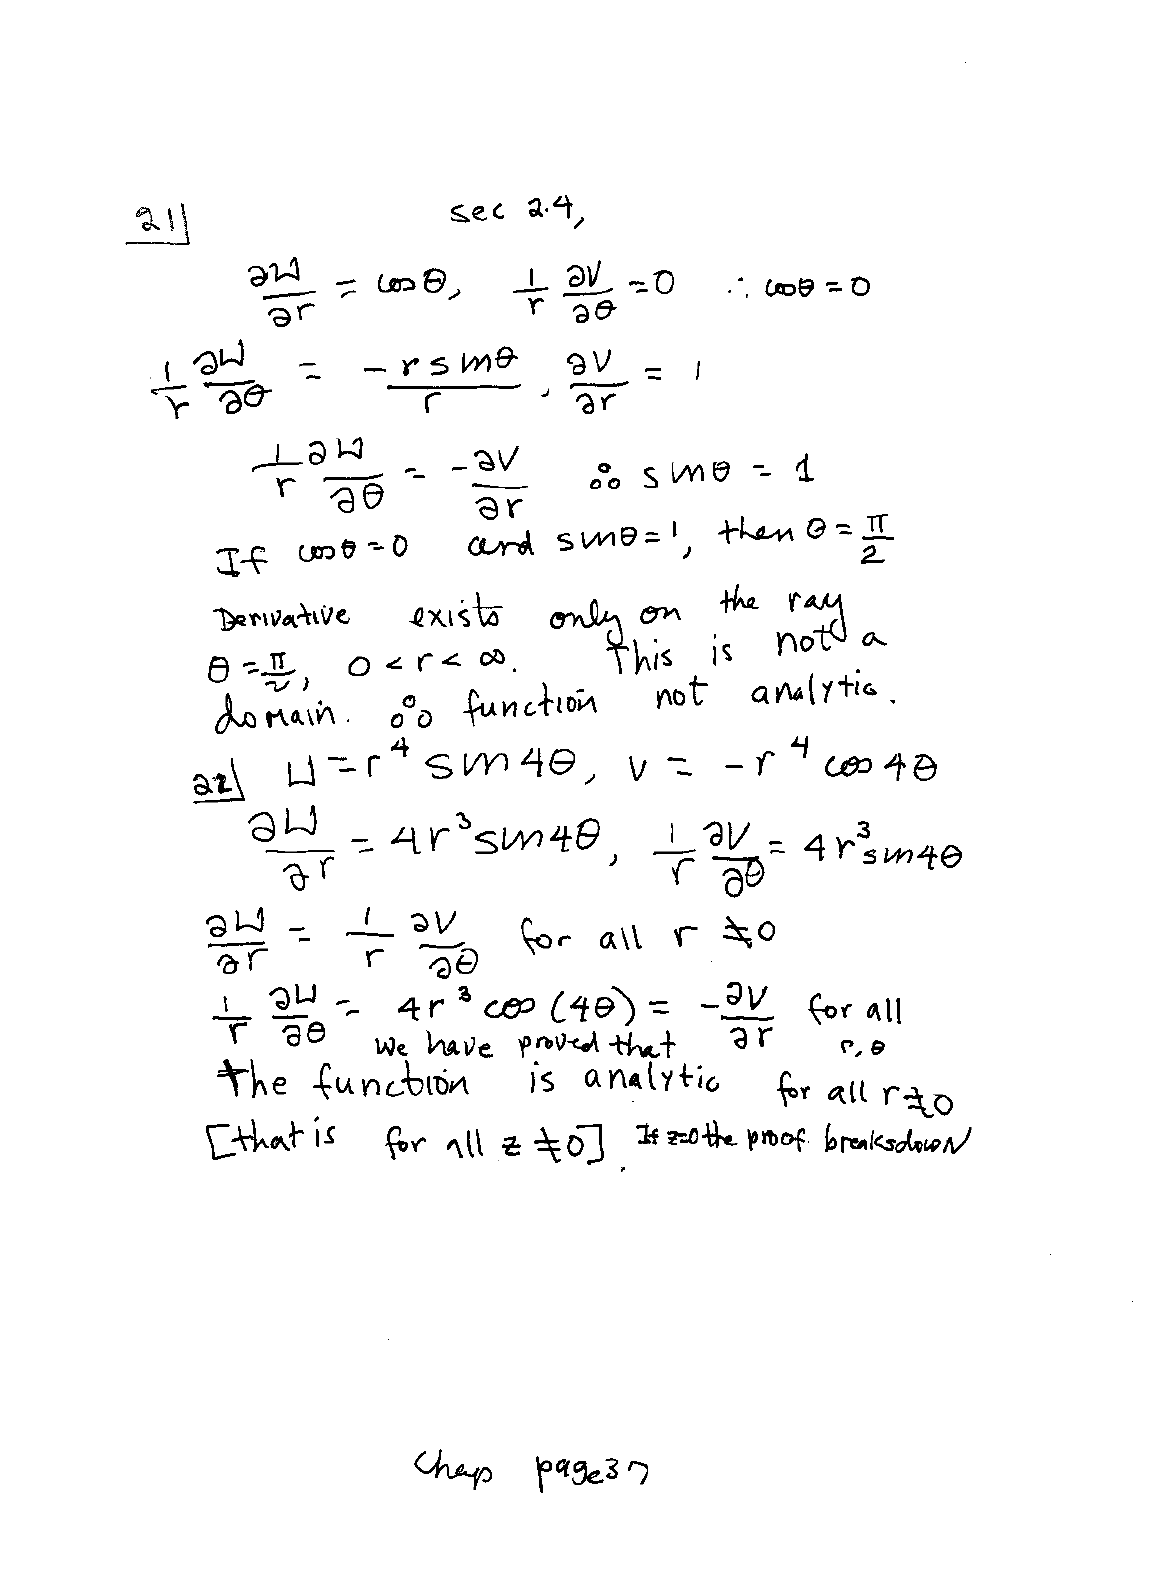 21]   sec 2.4,
∂u/∂r = cosθ, 1/r ∂v/∂θ = 0 ∴ cosθ = 0
1/r ∂u/∂θ = -r sinθ/r, ∂v/∂r = 1
1/r ∂u/∂θ = -∂v/∂r ∴ sinθ = 1
If cosθ = 0 and sinθ = 1, then θ = π/2
Derivative exists only on the ray
θ = π/2, 0 < r < ∞. This is not a
domain. ∴ function not analytic.
22] u = r⁴ sin 4θ, v = -r⁴ cos 4θ
∂u/∂r = 4r³ sin 4θ, 1/r ∂v/∂θ = 4r³ sin 4θ
∂u/∂r = 1/r ∂v/∂θ for all r ≠ 0
1/r ∂u/∂θ = 4r³ cos (4θ) = -∂v/∂r for all r, θ
We have proved that
the function is analytic for all r ≠ 0
[that is for all z ≠ 0]. If z=0 the proof breaks down
Chap page 37